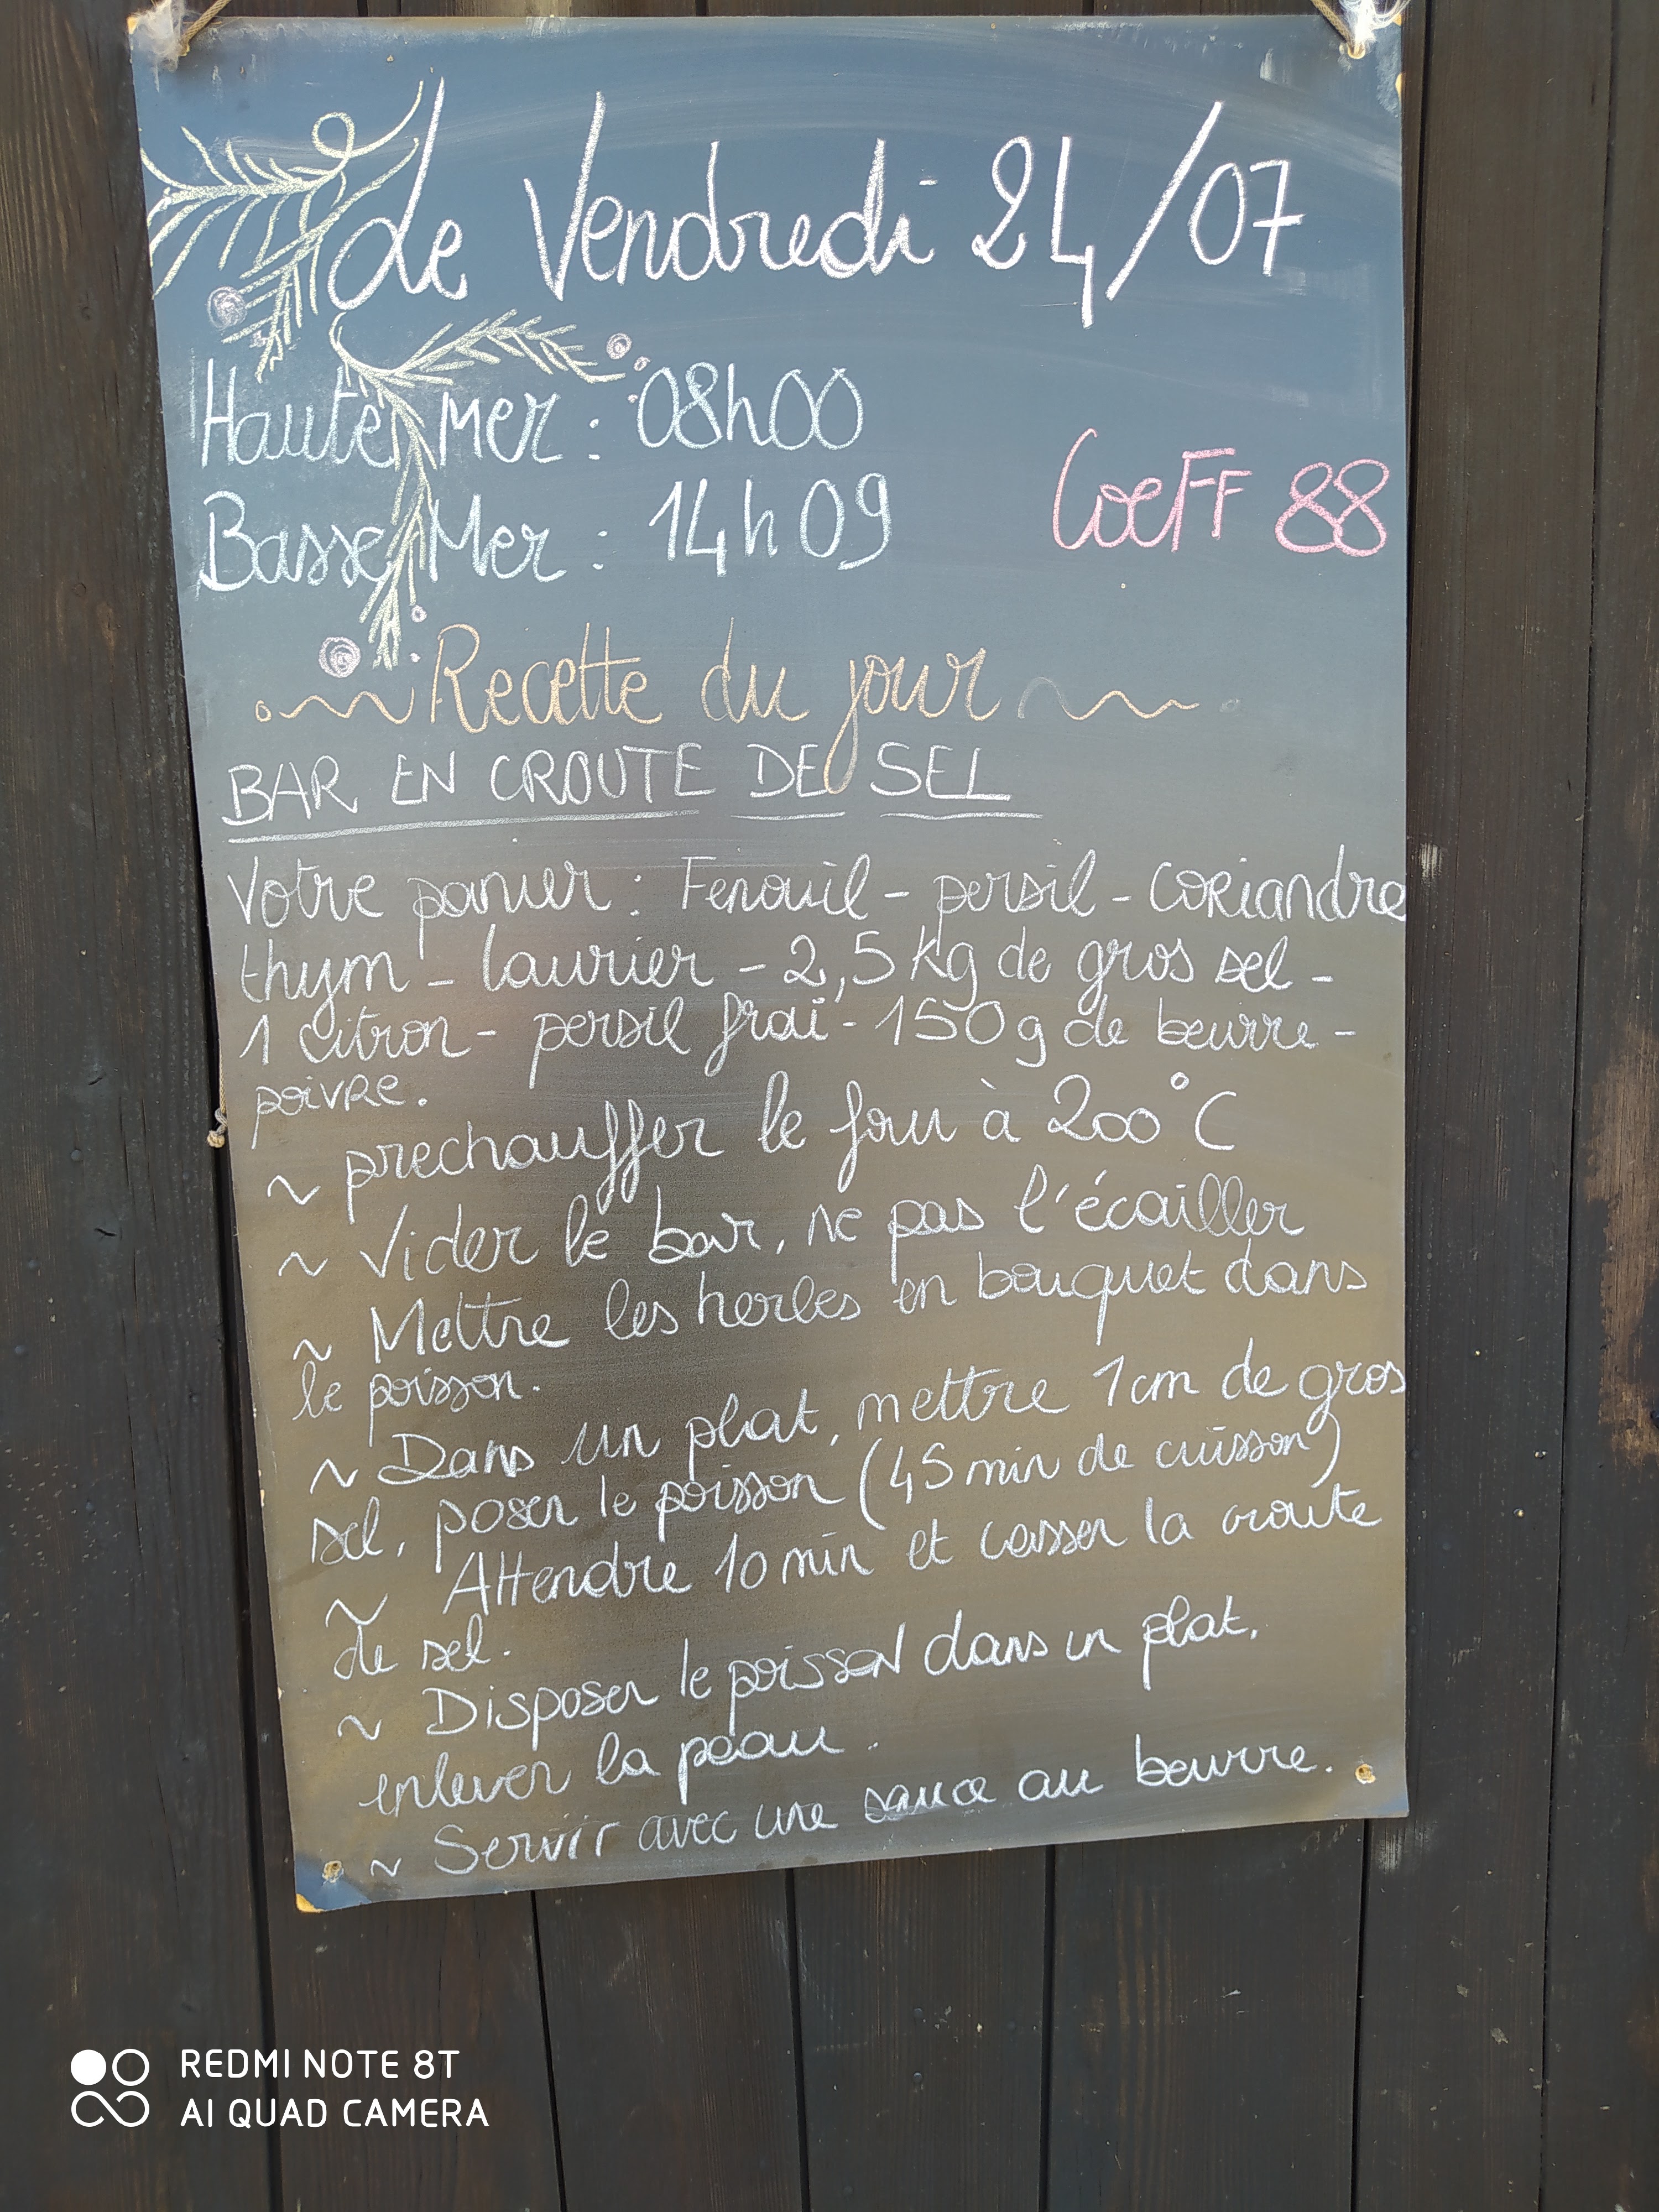 Le Vendredi 24/07
Haute Mer : 08h00
Basse Mer : 14h09
Coeff 88
Recette du jour
BAR EN CROUTE DE SEL
Votre panier : Fenouil - persil - coriandre
thym - laurier - 2,5 kg de gros sel -
1 citron - persil frai - 150 g de beurre -
poivre.
~ prechauffer le four à 200°C
~ Vider le bar, ne pas l'écailler
~ Mettre les herbes en bouquet dans
le poisson.
~ Dans un plat, mettre 1cm de gros
sel, poser le poisson (45 min de cuisson)
~ Attendre 10 min et casser la croute
de sel.
~ Disposer le poisson dans un plat,
enlever la peau.
~ Servir avec une sauce au beurre.
REDMI NOTE 8T
AI QUAD CAMERA